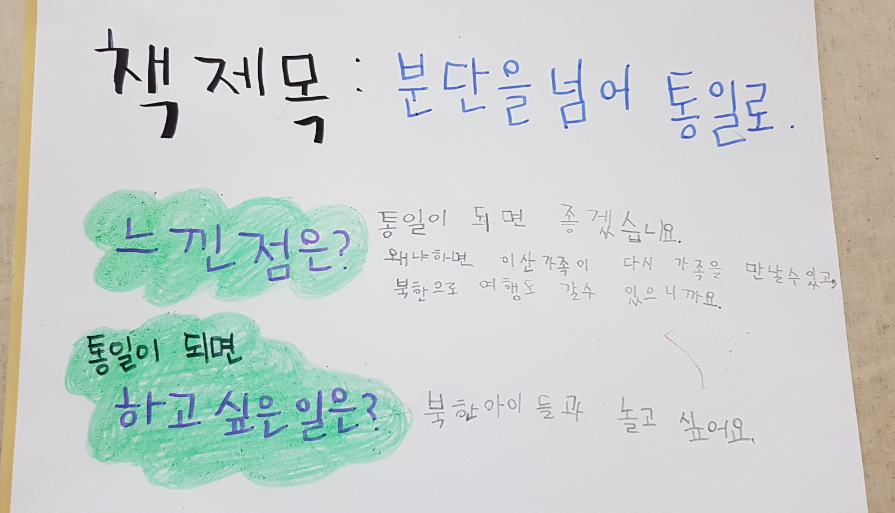 책 제목 : 분단을 넘어 통일로.
느낀점은?
통일이 되면 좋겠습니요.
왜냐하면 이산가족이 다시 가족을 만날수있고,
북한으로 여행도 갈수 있으니까요.
통일이 되면
하고 싶은 일은?
북한아이들과 놀고 싶어요.